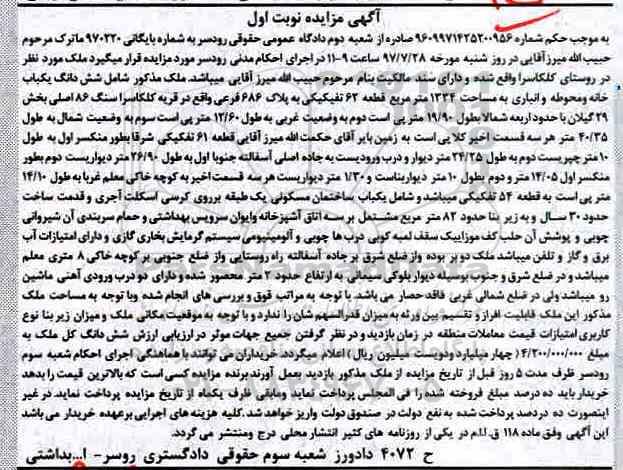 آگهی مزایده نوبت اول
به موجب حکم شماره ۹۶۰۹۹۷۱۴۲۵۳۰۰۹۵۶ صادره از شعبه دوم دادگاه عمومی حقوقی رودسر به شماره بایگانی ۹۷۰۳۲۰ ماترک مرحوم
حبیب الله میرز آقایی در روز شنبه مورخه ۹۷/۷/۲۸ ساعت ۹-۱۱ در اجرای احکام مدنی رودسر مورد مزایده قرار میگیرد ملک مورد نظر
در روستای کلکاسرا واقع شده و دارای سند مالکیت بنام مرحوم حبیب الله میرز آقایی میباشد. ملک مذکور شامل شش دانگ یکباب
خانه ومحوطه و انباری به مساحت ۱۳۳۴ متر مربع قطعه ۶۲ تفکیکی به پلاک ۶۸۶ فرعی واقع در قریه کلکاسرا سنگ ۸۶ اصلی بخش
۲۹ گیلان با حدود اربعه شمالا بطول ۱۹/۹۰ متر پی است دوم به وضعیت غربی به طول ۱۲/۶۰ متر پی است سوم به وضعیت شمال به طول
۴۰/۳۵ متر هر سه قسمت اخیر کلا پی است به زمین بایر آقای حکمت الله میرز آقایی قطعه ۶۱ تفکیکی شرقا بطور منکسر اول به طول
۱۰ متر چپریست دوم به طول ۲۴/۲۵ متر دیوار و درب ورودیست به جاده اصلی آسفالته جنوبا اول به طول ۲۶/۹۰ متر دیواریست دوم بطور
منکسر اول ۱۴/۰۵ متر و دوم بطول ۱۰ متر دیواریناست و ۱/۳۰ متر دیواریست هر سه قسمت اخیر به کوچه خاکی معلم غربا به طول ۱۴/۱۰
متر پی است به قطعه ۵۴ تفکیکی میباشد و شامل یکباب ساختمان مسکونی یک طبقه برروی کرسی اسکلت آجری و قدمت ساخت
حدود ۳۰ سال و به زیر بنا حدود ۸۲ متر مربع مشتمل بر سه اتاق آشپزخانه وایوان سرویس بهداشتی و حمام سربندی آن شیروانی
چوبی و پوشش آن حلب کف موزاییک سقف لمبه کوبی درب ها چوبی و آلومینیومی سیستم گرمایش بخاری گازی و دارای امتیازات آب
برق و گاز و تلفن میباشد ملک دو بر بوده واز ضلع شرق بر جاده آسفالته راه روستایی واز ضلع جنوبی بر کوچه خاکی ۸ متری معلم
میباشد و در ضلع شرق و جنوب بوسیله دیوار بلوکی سیمانی به ارتفاع حدود ۲ متر محصور شده و دارای دو درب ورودی آهنی ماشین
رو میباشد ولی در ضلع شمالی غربی فاقد حصار می باشد. با توجه به مراتب فوق و بررسی های انجام شده وبا توجه به مساحت ملک
مذکور این ملک قابلیت افراز و تقسیم بین ورثه به میزان قدرالسهم شان را ندارد و با توجه به موقعیت مکانی ملک و میزان زیر بنا نوع
کاربری امتیازات قیمت معاملات منطقه در زمان بازدید و در نظر گرفتن جمیع جهات موثر در ارزیابی ارزش شش دانگ کل ملک به
مبلغ ۴/۲۰۰/۰۰۰/۰۰۰ ( چهار میلیارد ودویست میلیون ریال) اعلام میگردد. خریداران می توانند با هماهنگی اجرای احکام شعبه سوم
رودسر ظرف مدت ۵ روز قبل از تاریخ مزایده از ملک مذکور بازدید بعمل آورند برنده مزایده کسی است که بالاترین قیمت را بدهد
خریدار باید ده درصد مبلغ فروخته شده را فی المجلس پرداخت نماید ومابقی ظرف یکماه از تاریخ مزایده پرداخت نماید. در غیر
اینصورت ده درصد پرداخت شده به نفع دولت در صندوق دولت واریز خواهد شد. کلیه هزینه های اجرایی برعهده خریدار می باشد
این آگهی وفق ماده ۱۱۸ ق.ا.م در یکی از روزنامه های کثیر انتشار محلی درج ومنتشر می گردد.
ح ۴۰۷۲ دادورز شعبه سوم حقوقی دادگستری روسر- ا...بداشتی